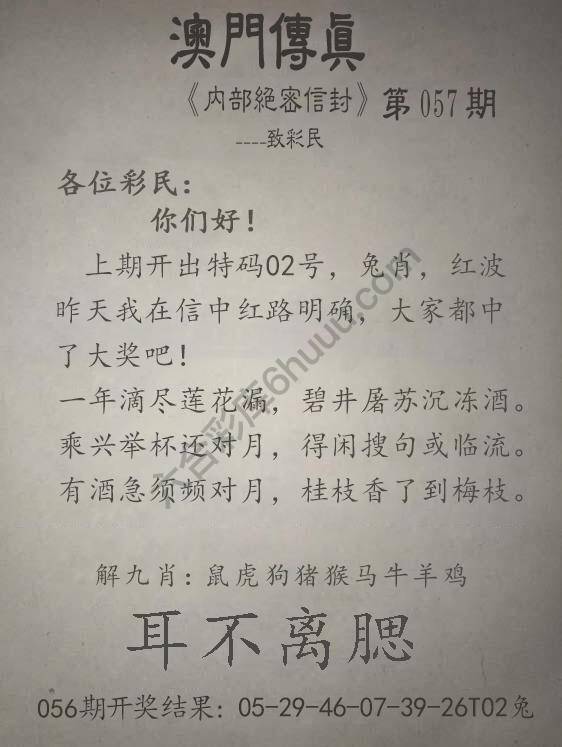 澳門傳眞
《内部絕密信封》第057期
----致彩民
各位彩民：
你们好！
上期开出特码02号，兔肖，红波
昨天我在信中红路明确，大家都中
了大奖吧！
一年滴尽莲花漏，碧井屠苏沉冻酒。
乘兴举杯还对月，得闲搜句或临流。
有酒急须频对月，桂枝香了到梅枝。
解九肖：鼠虎狗猪猴马牛羊鸡
耳不离腮
056期开奖结果：05-29-46-07-39-26T02兔
六合彩库6huuu.com